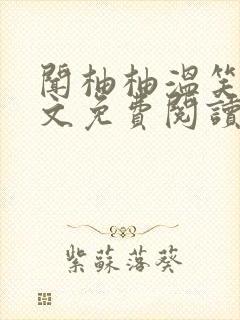 闻柚柚温笑
文免費閱讀
紫蘇落葵